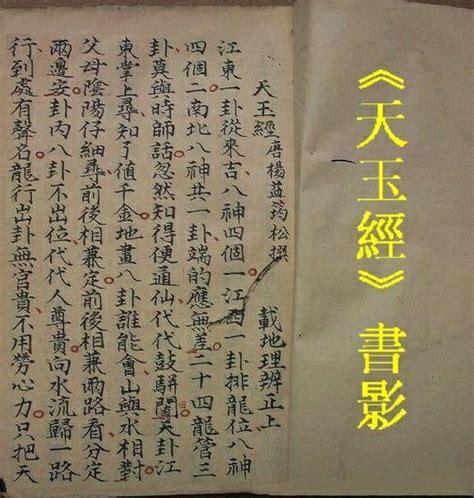 《天玉經》書影
天玉經唐楊益筠松撰 載地理辨正上
江東一卦從來吉八神四個一江西一卦排龍位八神
四個二南北八神共一卦端的應無差二十四龍管三
卦莫與時師話忽然知得便通仙代代鼓駢闐天卦江
東掌上尋知了值千金地畫八卦誰能會山與水相對
父母陰陽仔細尋前後相兼定前後相兼兩路看分定
兩邊安卦內八卦不出位代代人尊貴向水流歸一路
行到處有聲名龍行出卦無官貴不用勞心力只把天